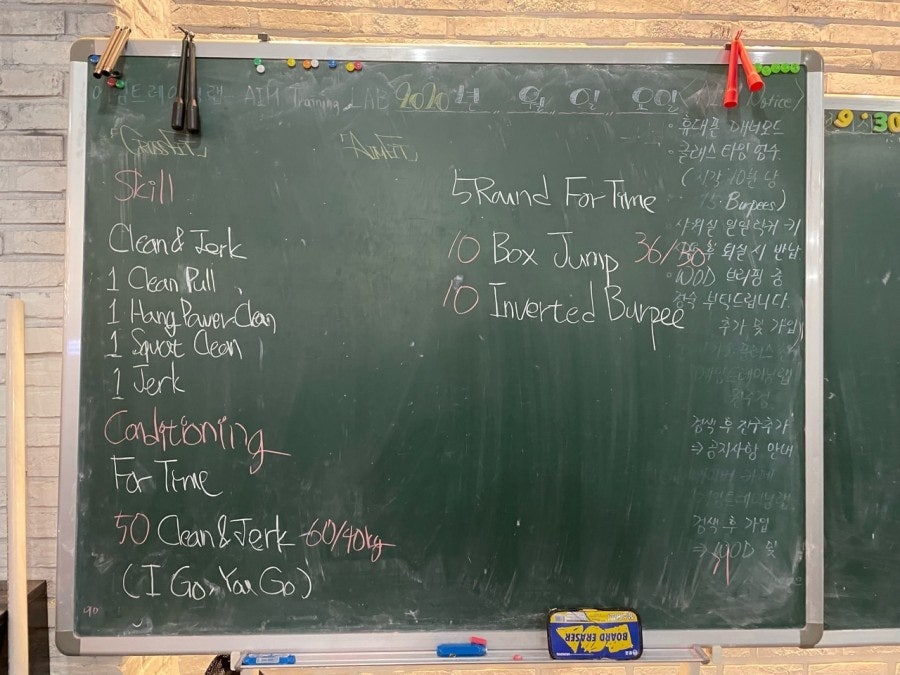 AIM Training LAB 2020 년 월 일 요일
Skill
Clean & Jerk
1 Clean Pull
1 Hang Power Clean
1 Squat Clean
1 Jerk
Conditioning
For Time
50 Clean & Jerk 60/40kg
(I Go, You Go)
5 Round For Time
10 Box Jump 36/30
10 Inverted Burpee
Notice>
휴대폰 매너모드
클래스 타임 엄수
15 Burpees)
퇴실 시 반납
WOD 브리핑 중
정숙 부탁드립니다
추가 및 가입
검색 후 친구추가
⇒ 공지사항 안내
검색 후 가입
⇒ WOD 및
9:30
BOARD ERASER